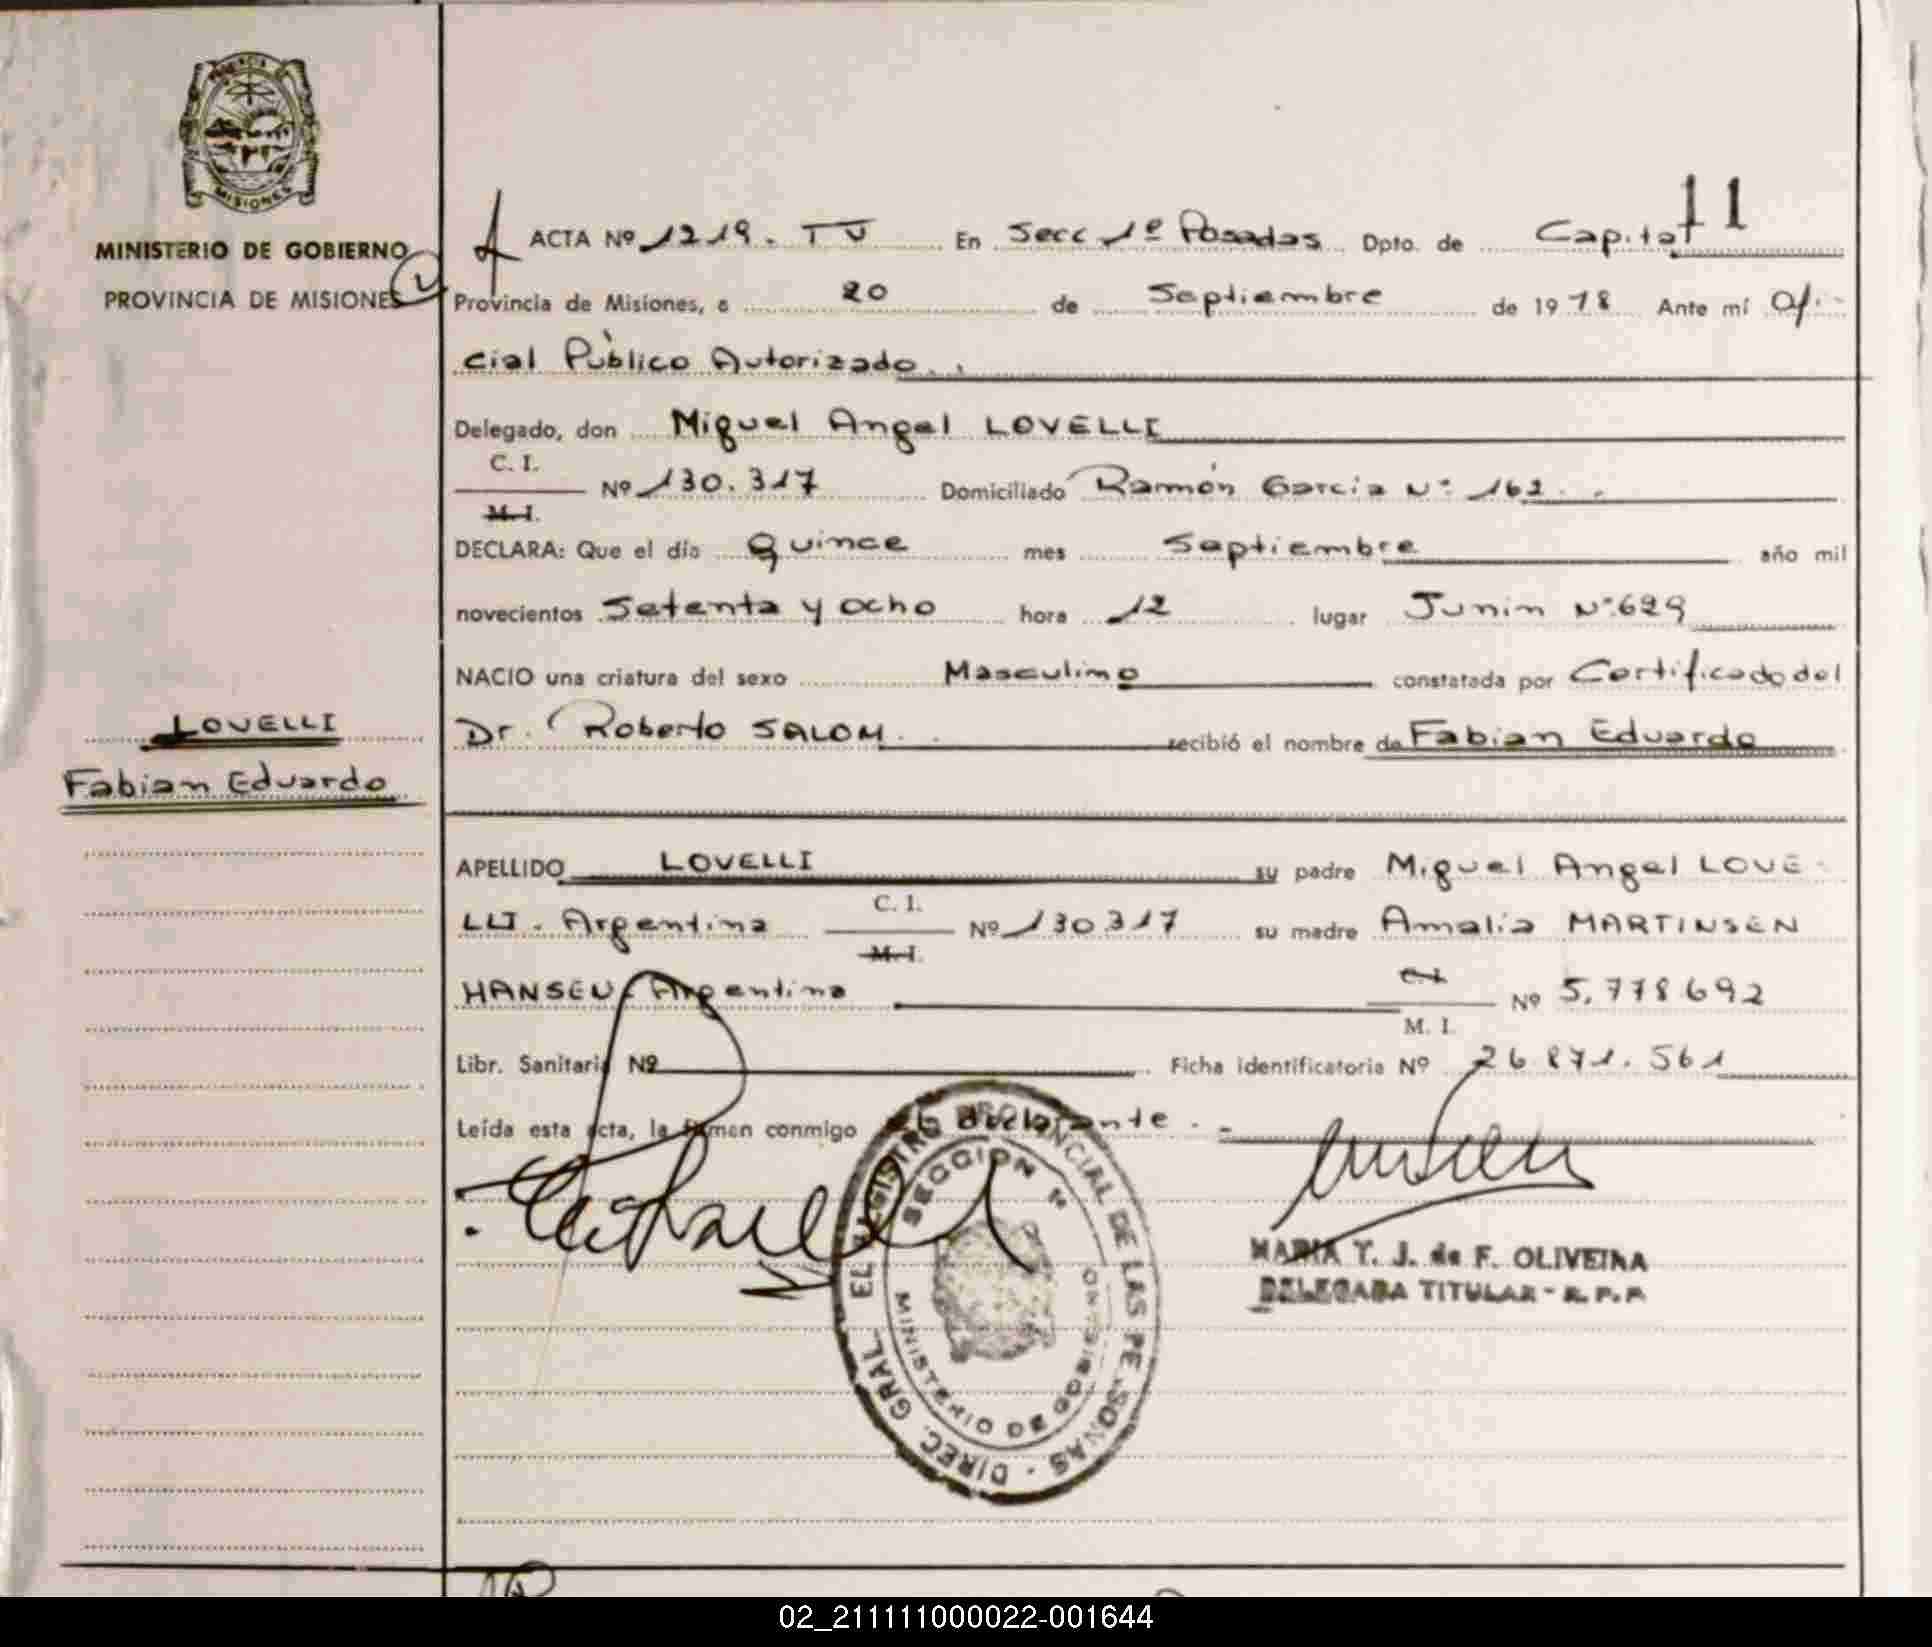 PROVINCIA DE
MISIONES
MINISTERIO DE GOBIERNO
PROVINCIA DE MISIONES
LOVELLI
Fabian Eduardo
11
ACTA Nº 1219. TV En Secc 1º Posadas Dpto. de Capital
Provincia de Misiones, a 20 de Septiembre de 1978 Ante mí Ofi
cial Público Autorizado.
Delegado, don Miguel Angel LOVELLI
C. I.
Nº 130.317 Domiciliado Ramón García Nº 162.
M. I.
DECLARA: Que el día Quince mes Septiembre año mil
novecientos Setenta y ocho hora 12 lugar Junin Nº 629
NACIO una criatura del sexo Masculino constatada por Certificado del
Dr. Roberto SALOM. recibió el nombre de Fabian Eduardo
APELLIDO LOVELLI su padre Miguel Angel LOVE-
C. I.
LLI. Argentina Nº 130.317 su madre Amalia MARTINSEN
M. I.
HANSEN. Argentina C. I. Nº 5.778.692
M. I.
Libr. Sanitaria Nº Ficha identificatoria Nº 26.871.561
Leída esta acta, la firman conmigo el declarante.
DIREC. GRAL. EL REGISTRO PROVINCIAL DE LAS PERSONAS
SECCION 1º
MINISTERIO DE GOBIERNO
MARIA T. J. de F. OLIVEIRA
DELEGADA TITULAR - R. P. P.
02_211111000022-001644